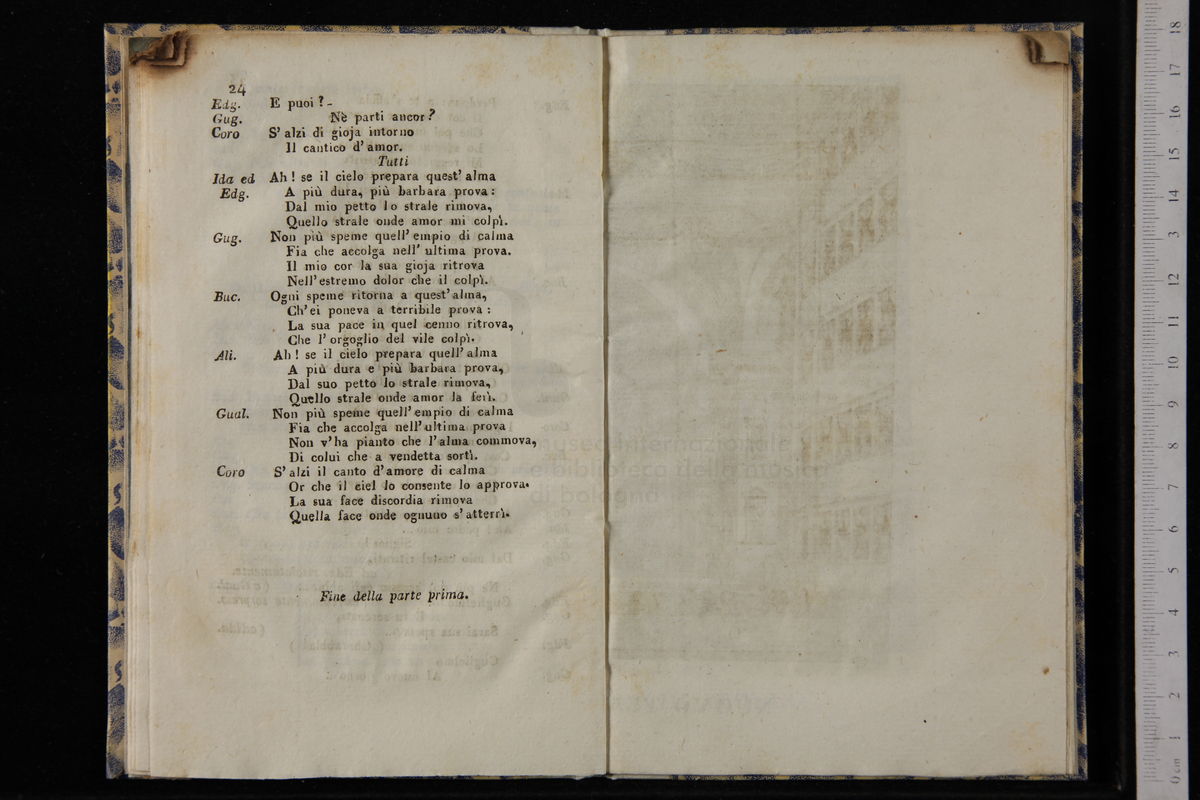 24
Edg. E puoi ? -
Gug. Nè parti ancor?
Coro S' alzi di gioja intorno
Il cantico d' amor.
Tutti
Ida ed Ah ! se il cielo prepara quest' alma
Edg. A più dura, più barbara prova :
Dal mio petto lo strale rimova,
Quello strale onde amor mi colpì.
Gug. Non più speme quell' empio di calma
Fia che accolga nell' ultima prova.
Il mio cor la sua gioja ritrova
Nell' estremo dolor che il colpì.
Buc. Ogni speme ritorna a quest' alma,
Ch' ei poneva a terribile prova :
La sua pace in quel cenno ritrova,
Che l' orgoglio del vile colpì.
Ali. Ah ! se il cielo prepara quell' alma
A più dura e più barbara prova,
Dal suo petto lo strale rimova,
Quello strale onde amor la ferì.
Gual. Non più speme quell' empio di calma
Fia che accolga nell' ultima prova
Non v' ha pianto che l' alma commova,
Di colui che a vendetta sortì.
Coro S' alzi il canto d' amore di calma
Or che il ciel lo consente lo approva.
La sua face discordia rimova
Quella face onde ognuno s' atterrì.
Fine della parte prima.
museo internazionale
e biblioteca della musica
di bologna
0 cm 1 2 3 4 5 6 7 8 9 10 11 12 13 14 15 16 17 18